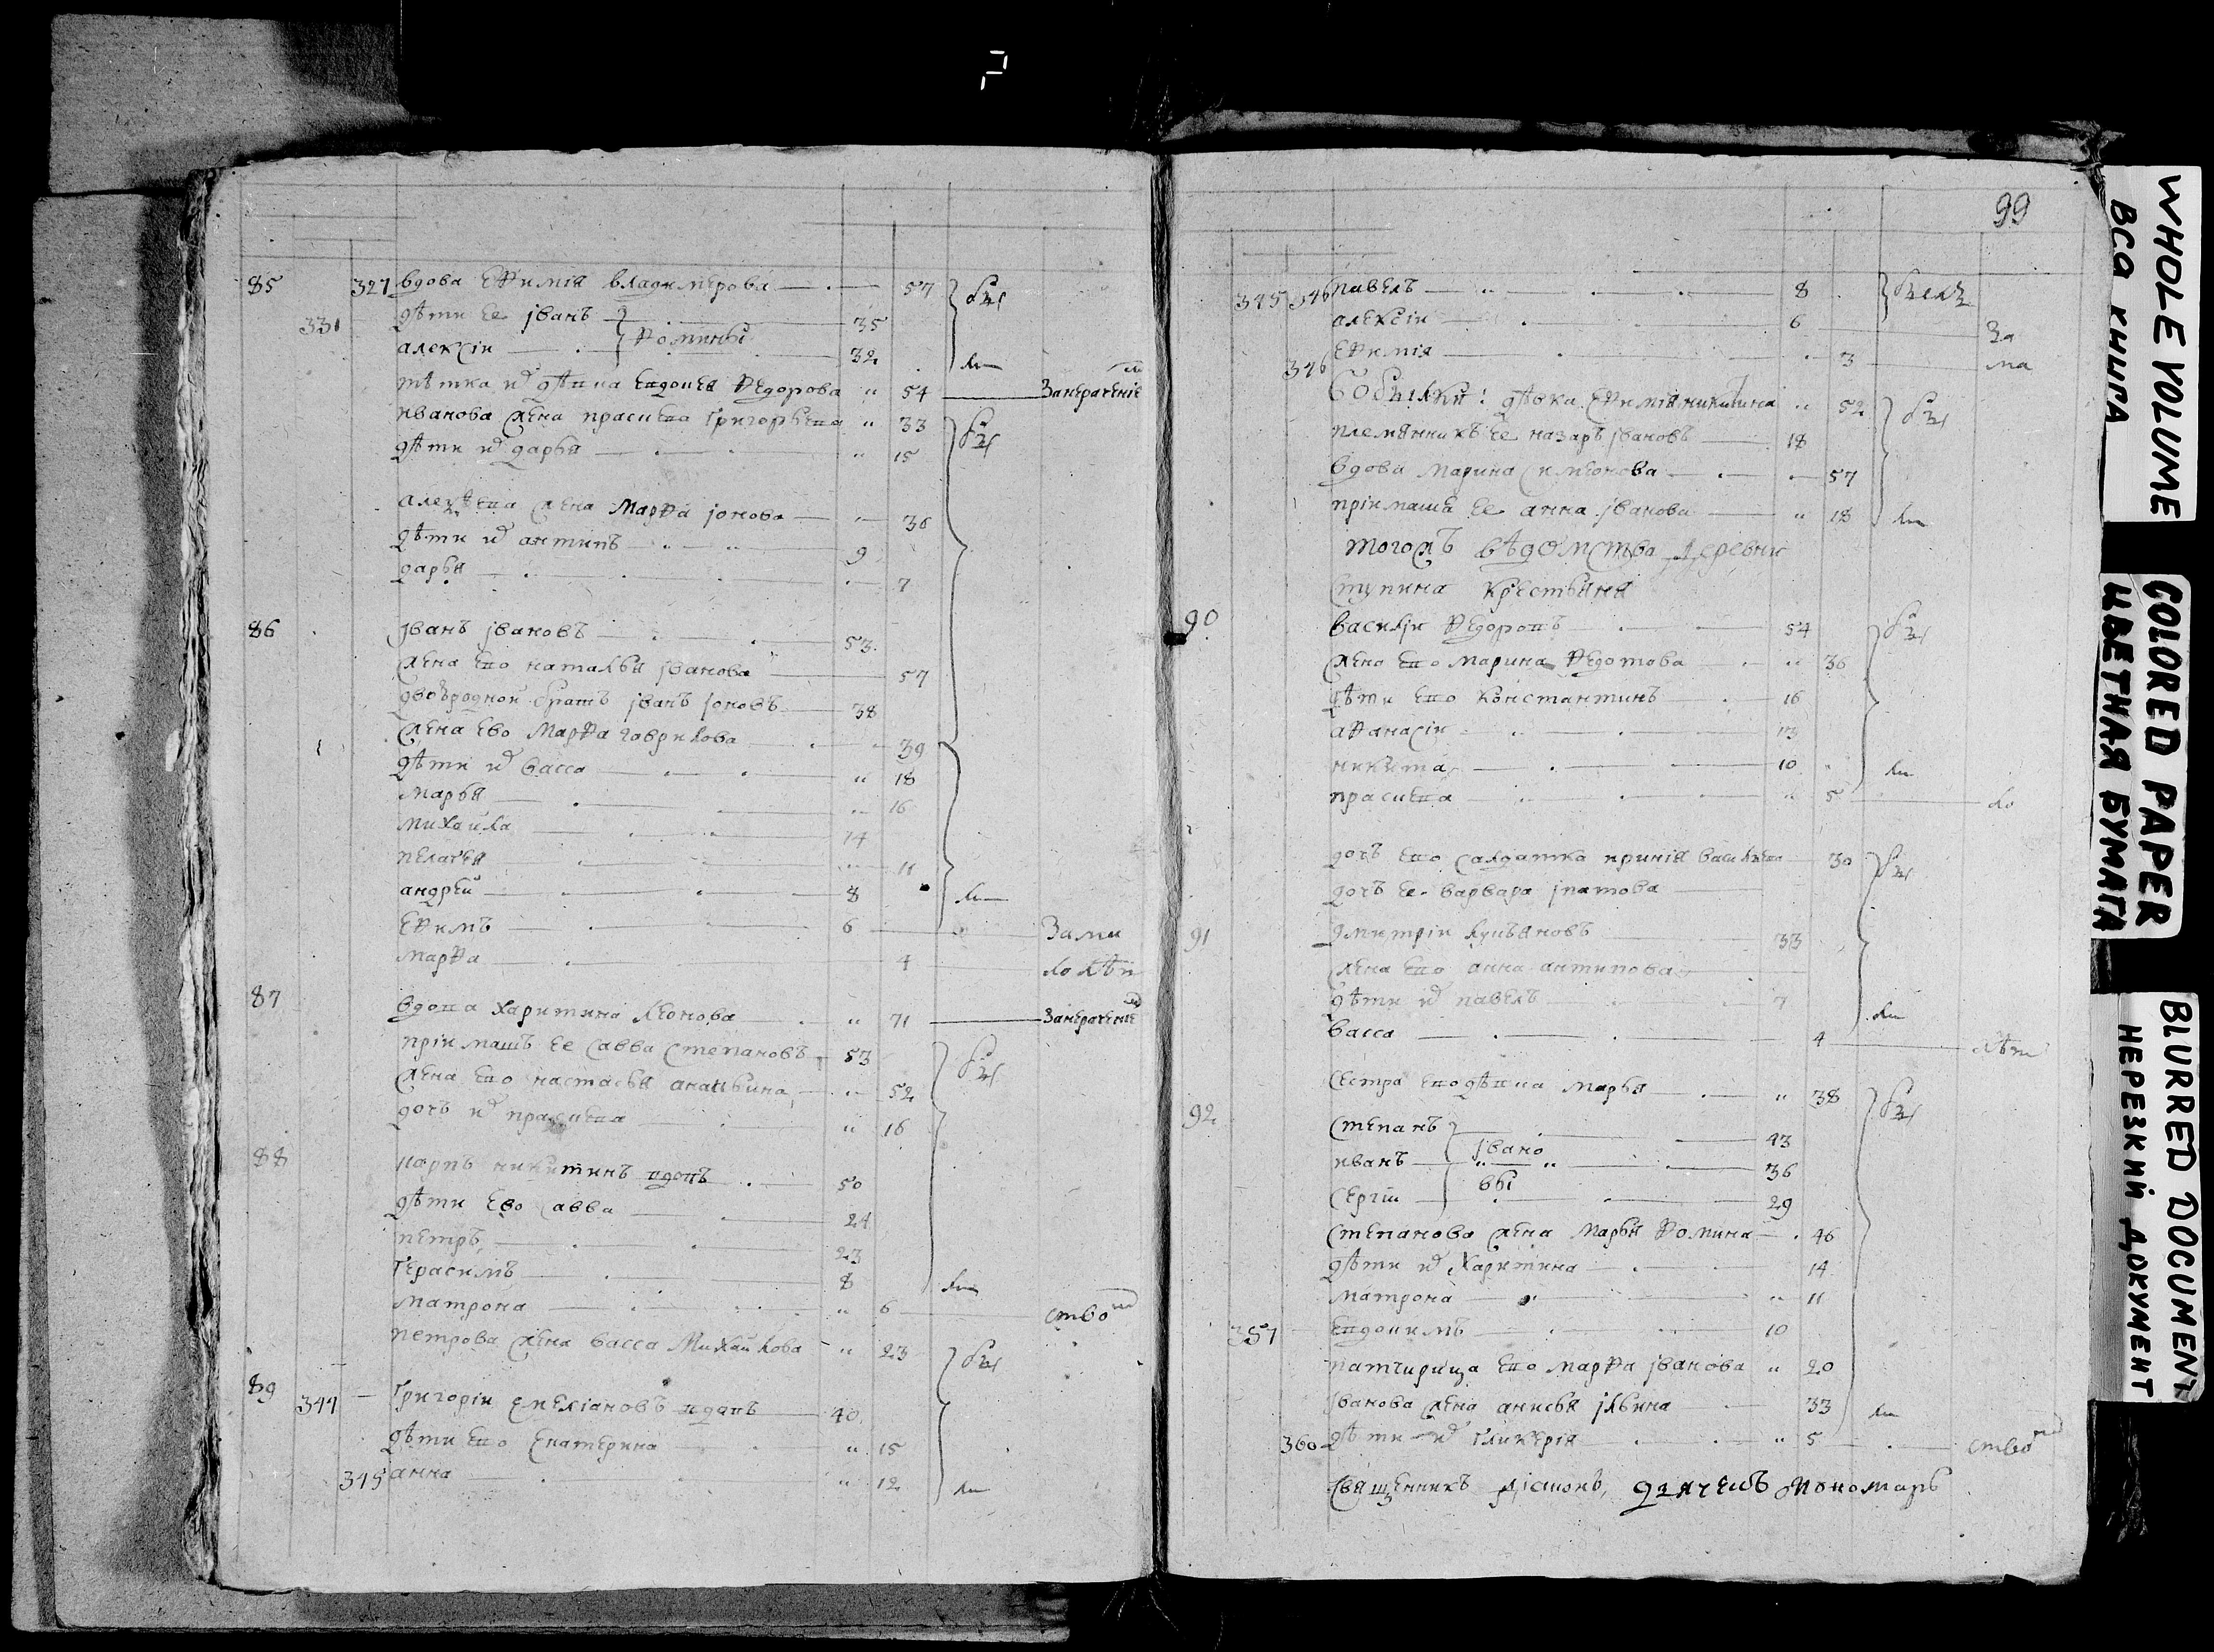 85 327 вдова Ефимія владимерова — 57 } бы
331 дѣти ее јванъ } Фомины — 35
алексіи — 32 ли
тѣтка их дѣвка Евдокея Федорова " 54 — Занерачениемъ
иванова жена прасковя Григорьева " 33 } бы
дѣти их дарья " 15
алексѣева жена Марфа јонова " 36
дѣти их антипъ 9
дарья 7
86 јванъ јвановъ 53
жена ево наталья јванова 57
двоюродной братъ јванъ јоновъ 38
жена Ево Марфа гаврилова 39
дѣти их васса " 18
Марья " 16
Михайла 14
пелагея " 11
андрей 8 ли
Ефимъ 6 — Зама
Марфа 4 — лолѣт
87 вдова харитина леонова " 71 — Занерачениемъ
пріимашъ ее савва степановъ 53 } бы
жена ево настасья ананьина " 52
дочь их прасковя " 16
88 карпъ никитинъ вдовъ 50
дѣти Ево савва 24
петръ 23
Герасимъ 8 ли
Матрона " 6 — ствомъ
петрова жена васса Михайлова " 23 } бы
89 344 Григоріи Емеліановъ вдовъ 40
дѣти Ево Екатерина " 15
345 анна " 12 ли
99
345 346 павелъ 8 }
алексіи 6 — За
346 Ефимія 3 — ма
бобылки: дѣвка Ефимія никитина " 52 } бы
племянникъ Ее назаръ јвановъ 18
вдова Марина симеонова 57
пріимаша Ее анна јванова " 18 ли
тогожъ вѣдомства деревни
ступина крестьяня
90 василіи Федоровъ 54 } бы
жена Ево Марина Федотова " 36
дѣти Ево константинъ 16
афанасіи 13
никита 10 ли
прасковя " 5 — ло
дочь Ево салдатка ирина васильева 30 } бы
дочь Ее варвара јпатова
91 дмитріи лукьяновъ 33
жена Ево анна антипова
дѣти их павелъ 7 ли
васса 4 — лѣт
сестра Ево дѣвка Марья " 38 } бы
92 степанъ } јвано 43
иванъ } " " 36
сергіи } вы 29
степанова жена Марья Фомина 46
дѣти их харитина 14
матрона " 11
357 Евдокимъ 10
патчирица Ево марфа јванова " 20
јванова жена анисья јльина 33 ли
360 дѣти их Гликерія " 5 — ствомъ
священникъ діаконъ, дьячекъ Пономарь
WHOLE VOLUME
ВСЯ КНИГА
COLORED PAPER
ЦВЕТНАЯ БУМАГА
BLURRED DOCUMENT
НЕРЕЗКИЙ ДОКУМЕНТ